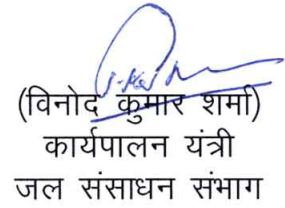 (विनोद कुमार शर्मा)
कार्यपालन यंत्री
जल संसाधन संभाग